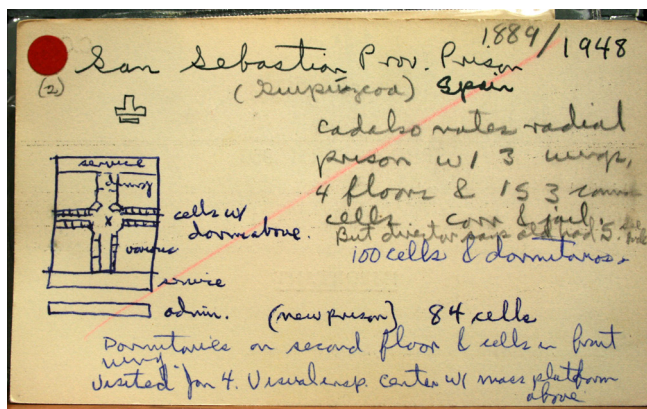 1889/1948
(2) San Sebastian Prov. Prison
(Guipúzcoa) Spain
Cadalso notes radial
prison w/ 3 wings,
4 floors & 153 comm
cells corr & jail.
But director says old had 5.
100 cells & dormitaros.
service
dining
cells w/
dorm above
various
service
admin. (new prison) 84 cells
Dormitories on second floor & cells in front
wing.
Visited Jan 4. Visual insp. center w/ mass platform
above